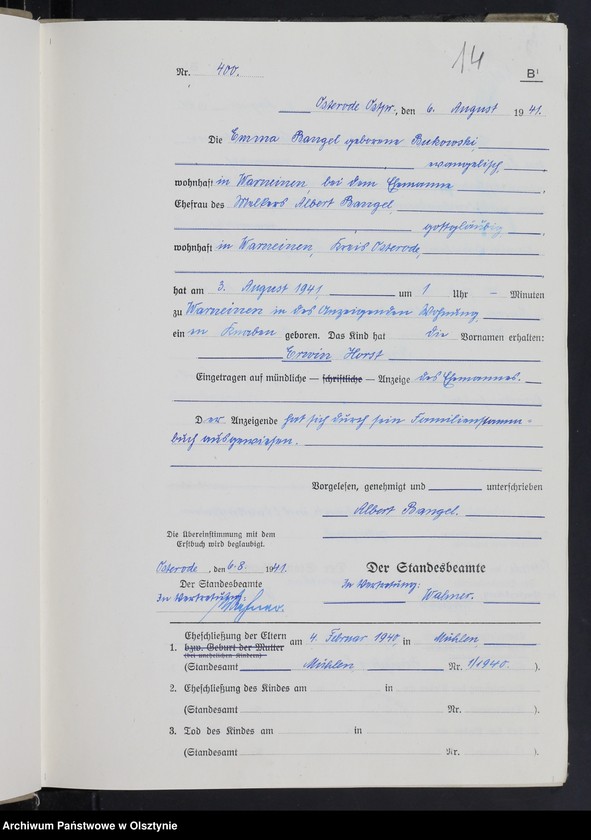 14
Nr. 400.
B¹
Osterode Ostpr., den 6. August 1941.
Die Emma Bangel geborene Bukowski,
evangelisch,
wohnhaft in Warneinen, bei dem Ehemanne,
Ehefrau des Melkers Albert Bangel,
gottgläubig,
wohnhaft in Warneinen, Kreis Osterode,
hat am 3. August 1941, um 1 Uhr – Minuten
zu Warneinen in des Anzeigenden Wohnung,
ein en Knaben geboren. Das Kind hat die Vornamen erhalten:
Erwin Horst
Eingetragen auf mündliche — schriftliche — Anzeige des Ehemannes.
Der Anzeigende hat sich durch sein Familienstamm-
buch ausgewiesen.
Vorgelesen, genehmigt und unterschrieben
Albert Bangel.
Die Übereinstimmung mit dem
Erstbuch wird beglaubigt.
Osterode, den 6.8. 1941.
Der Standesbeamte
Der Standesbeamte
In Vertretung:
In Vertretung:
1. Eheschließung der Eltern am 4. Februar 1940 in Mühlen,
bzw. Geburt der Mutter
(bei unehelichen Kindern)
(Standesamt Mühlen Nr. 1/1940. ).
2. Eheschließung des Kindes am in
(Standesamt Nr. ).
3. Tod des Kindes am in
(Standesamt Nr. ).
Archiwum Państwowe w Olsztynie